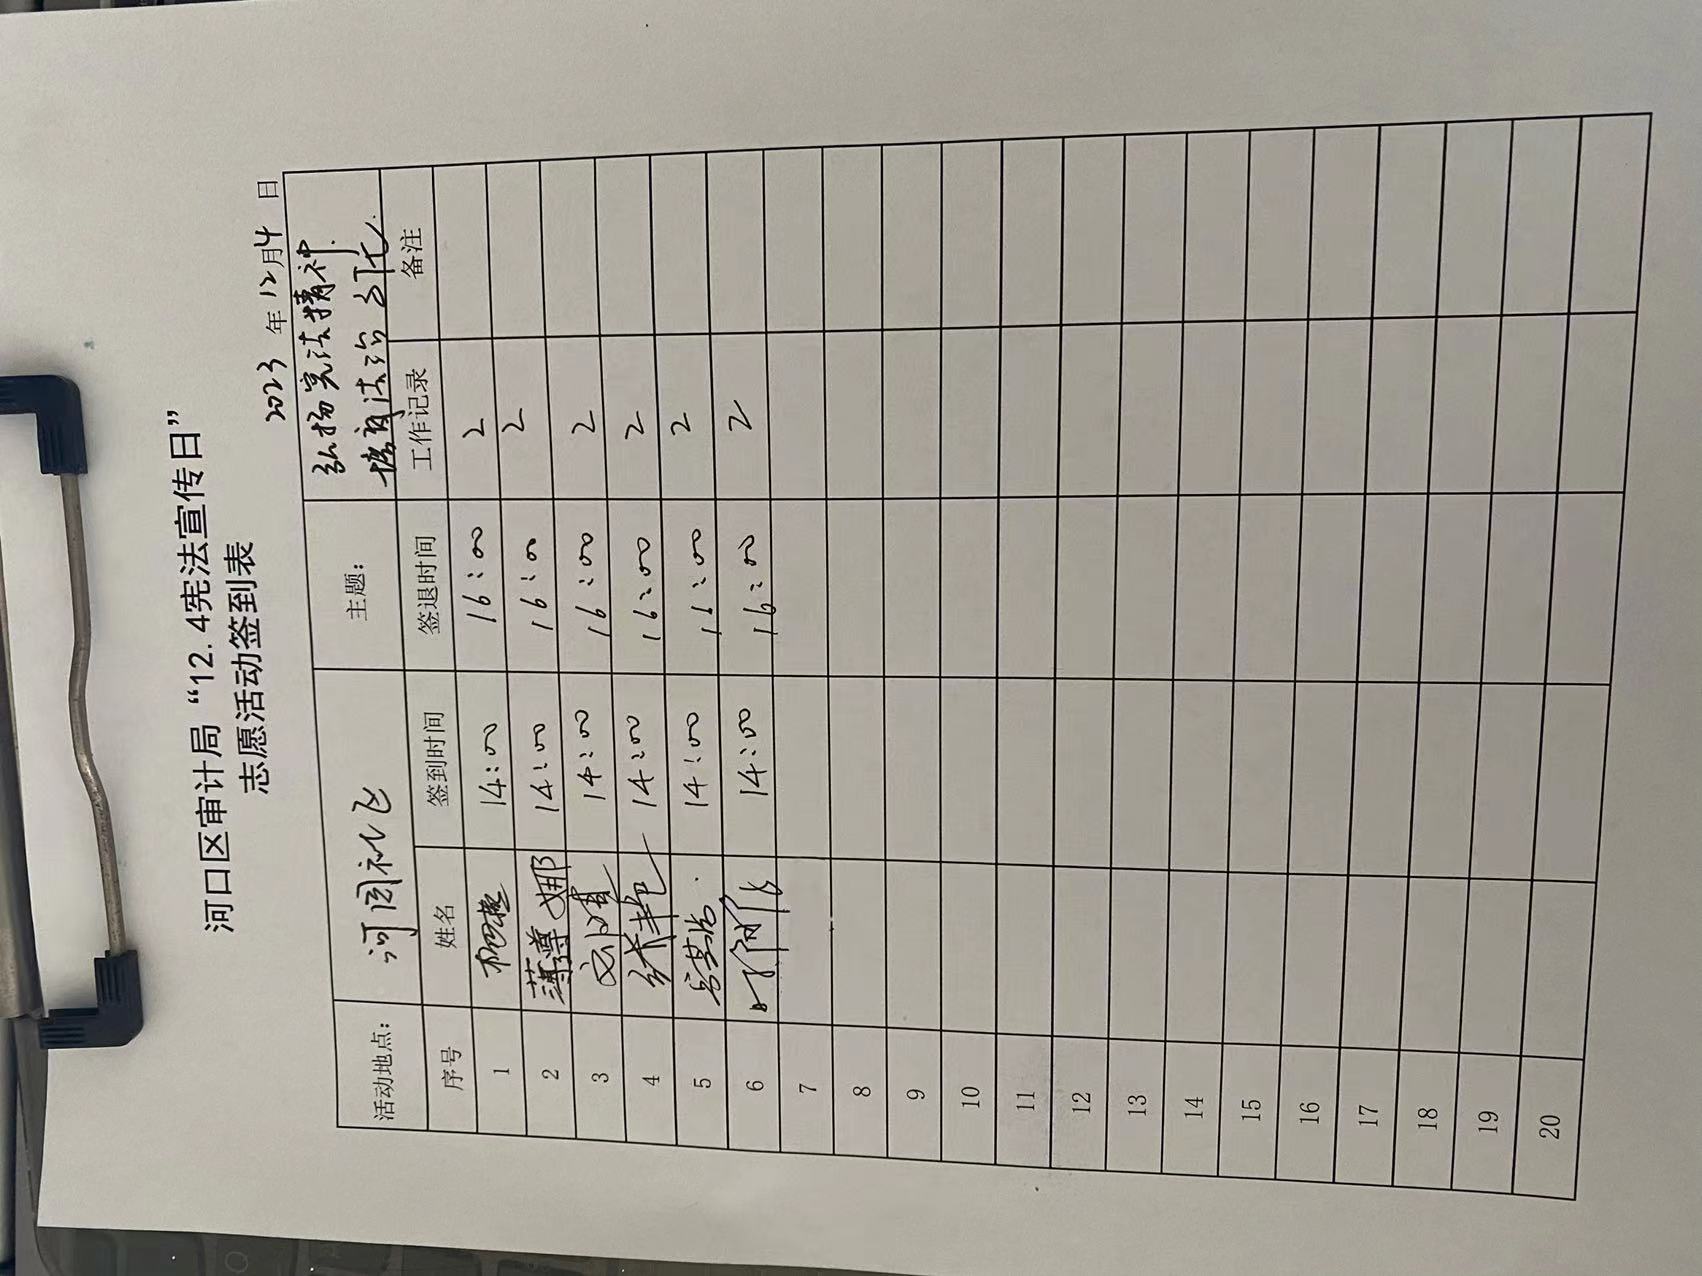 河口区审计局“12.4宪法宣传日”
志愿活动签到表
2023 年 12 月 4 日
活动地点: 河园社区 主题: 弘扬宪法精神
培育法治文化
序号 姓名 签到时间 签退时间 工作记录 备注
1 14:00 16:00 2
2 薄蓴娜 14:00 16:00 2
3 14:00 16:00 2
4 14:00 16:00 2
5 14:00 16:00 2
6 14:00 16:00 2
7
8
9
10
11
12
13
14
15
16
17
18
19
20